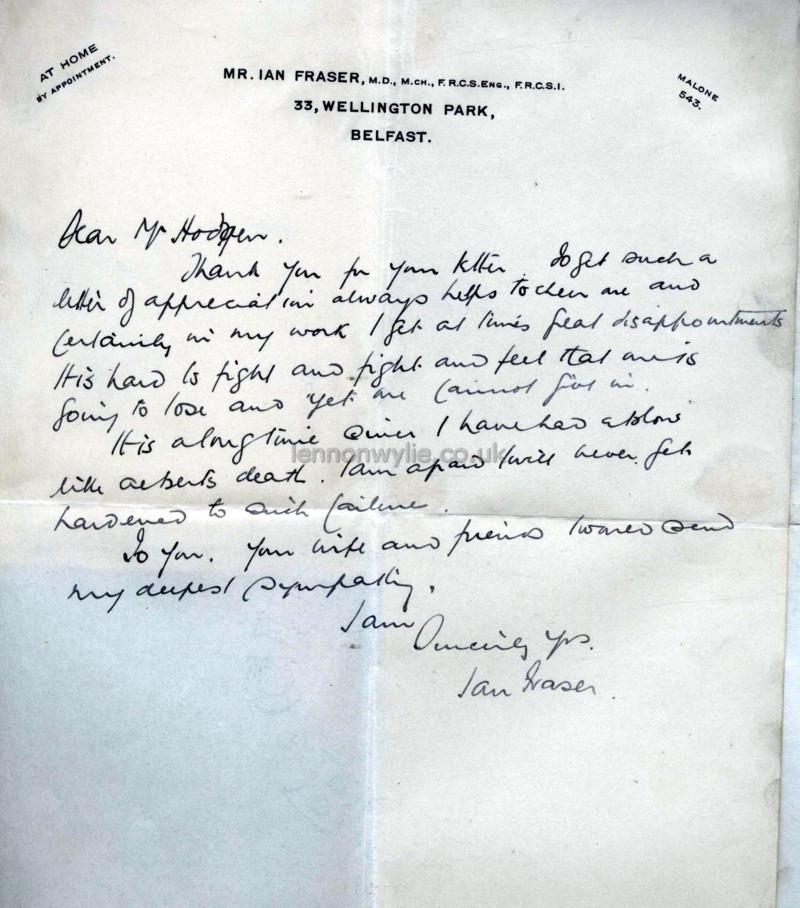 AT HOME
BY APPOINTMENT.
MR. IAN FRASER, M.D., M.CH., F.R.C.S.ENG., F.R.C.S.I.
33, WELLINGTON PARK,
BELFAST.
MALONE
543.
Dear Mr
Thank you for your letter. To get such a
letter of appreciation always helps to cheer me and
certainly in my work I get at times great disappointments
It is hard to fight and fight and feel that one is
going to lose and yet one cannot give in.
It is a long time since I have had a blow
lennonwylie.co.uk
like death. I am afraid I will never get
hardened to such failure.
To you. Your wife and friends I would send
my deepest sympathy.
I am
Sincerely yrs.
Ian Fraser.